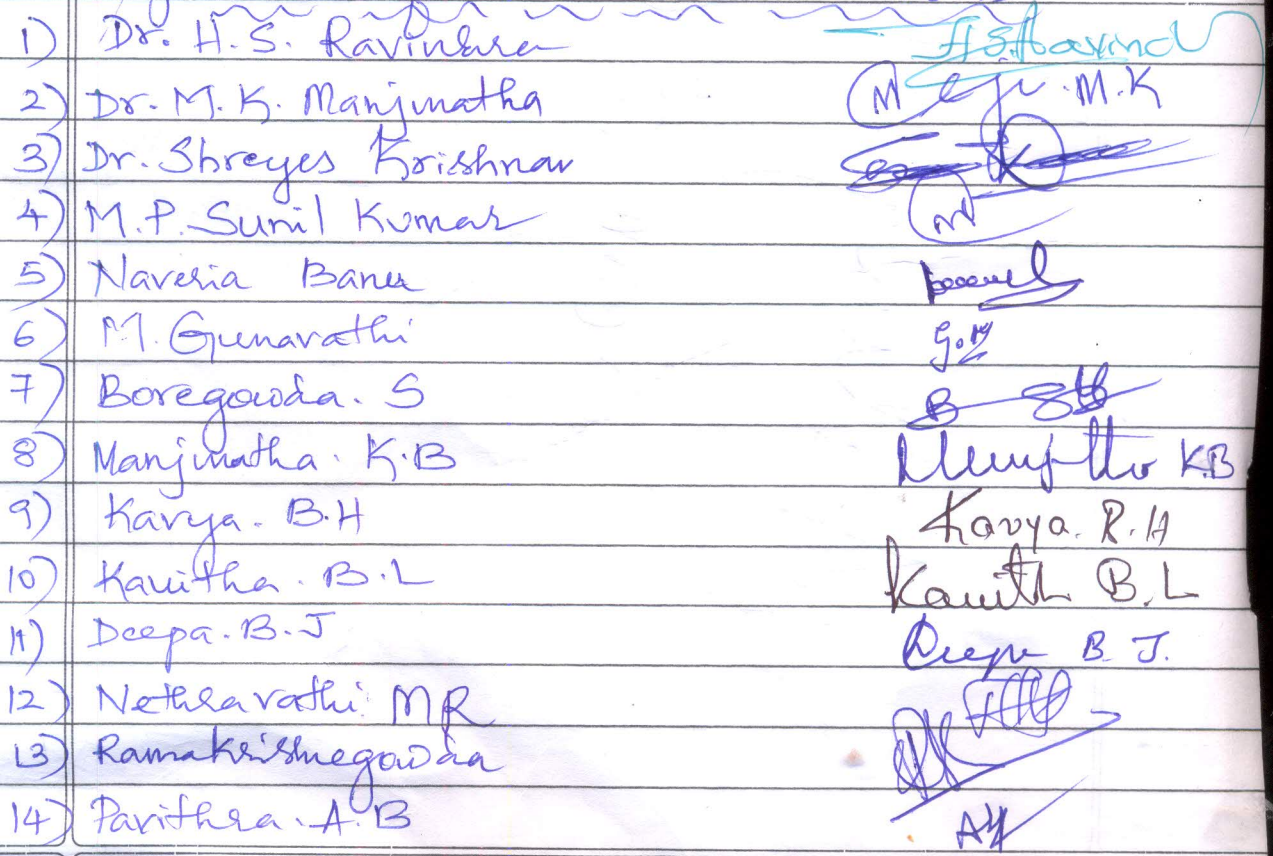 1) Dr. H.S. Ravindra H.S. Aavind
2) Dr. M.K. Manjunatha M.K
3) Dr. Shreyes Krishnav
4) M.P. Sunil Kumar
5) Naveria Banu
6) M. Gunavathi G.M
7) Boregowda. S B
8) Manjunatha. K.B K.B
9) Kavya. B.H Kavya. R.H
10) Kavitha. B.L Kavith B.L
11) Deepa. B.J Deepa B.J.
12) Nethravathi MR
13) Ramakrishnegowda
14) Pavithra. A.B